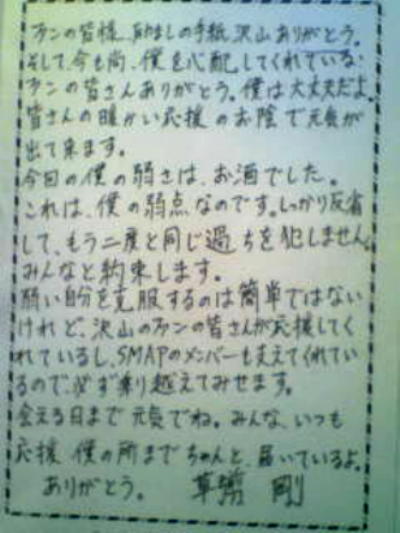 ファンの皆様、励ましの手紙、沢山ありがとう。
そして、今も尚、僕を心配してくれている
ファンの皆さんありがとう。僕は大丈夫だよ。
皆さんの暖かい応援のお陰で元気が
出て来ます。
今回の僕の弱さは、お酒でした。
これは、僕の弱点なのです。しっかり反省
して、もう二度と同じ過ちを犯しません。
みんなと約束します。
弱い自分を克服するのは簡単ではない
けれど、沢山のファンの皆さんが応援してく
れているし、SMAPのメンバーも支えてくれてい
るので、必ず乗り越えてみせます。
会える日まで元気でね。みんな、いつも
応援、僕の所までちゃんと、届いているよ。
ありがとう。 草彅 剛